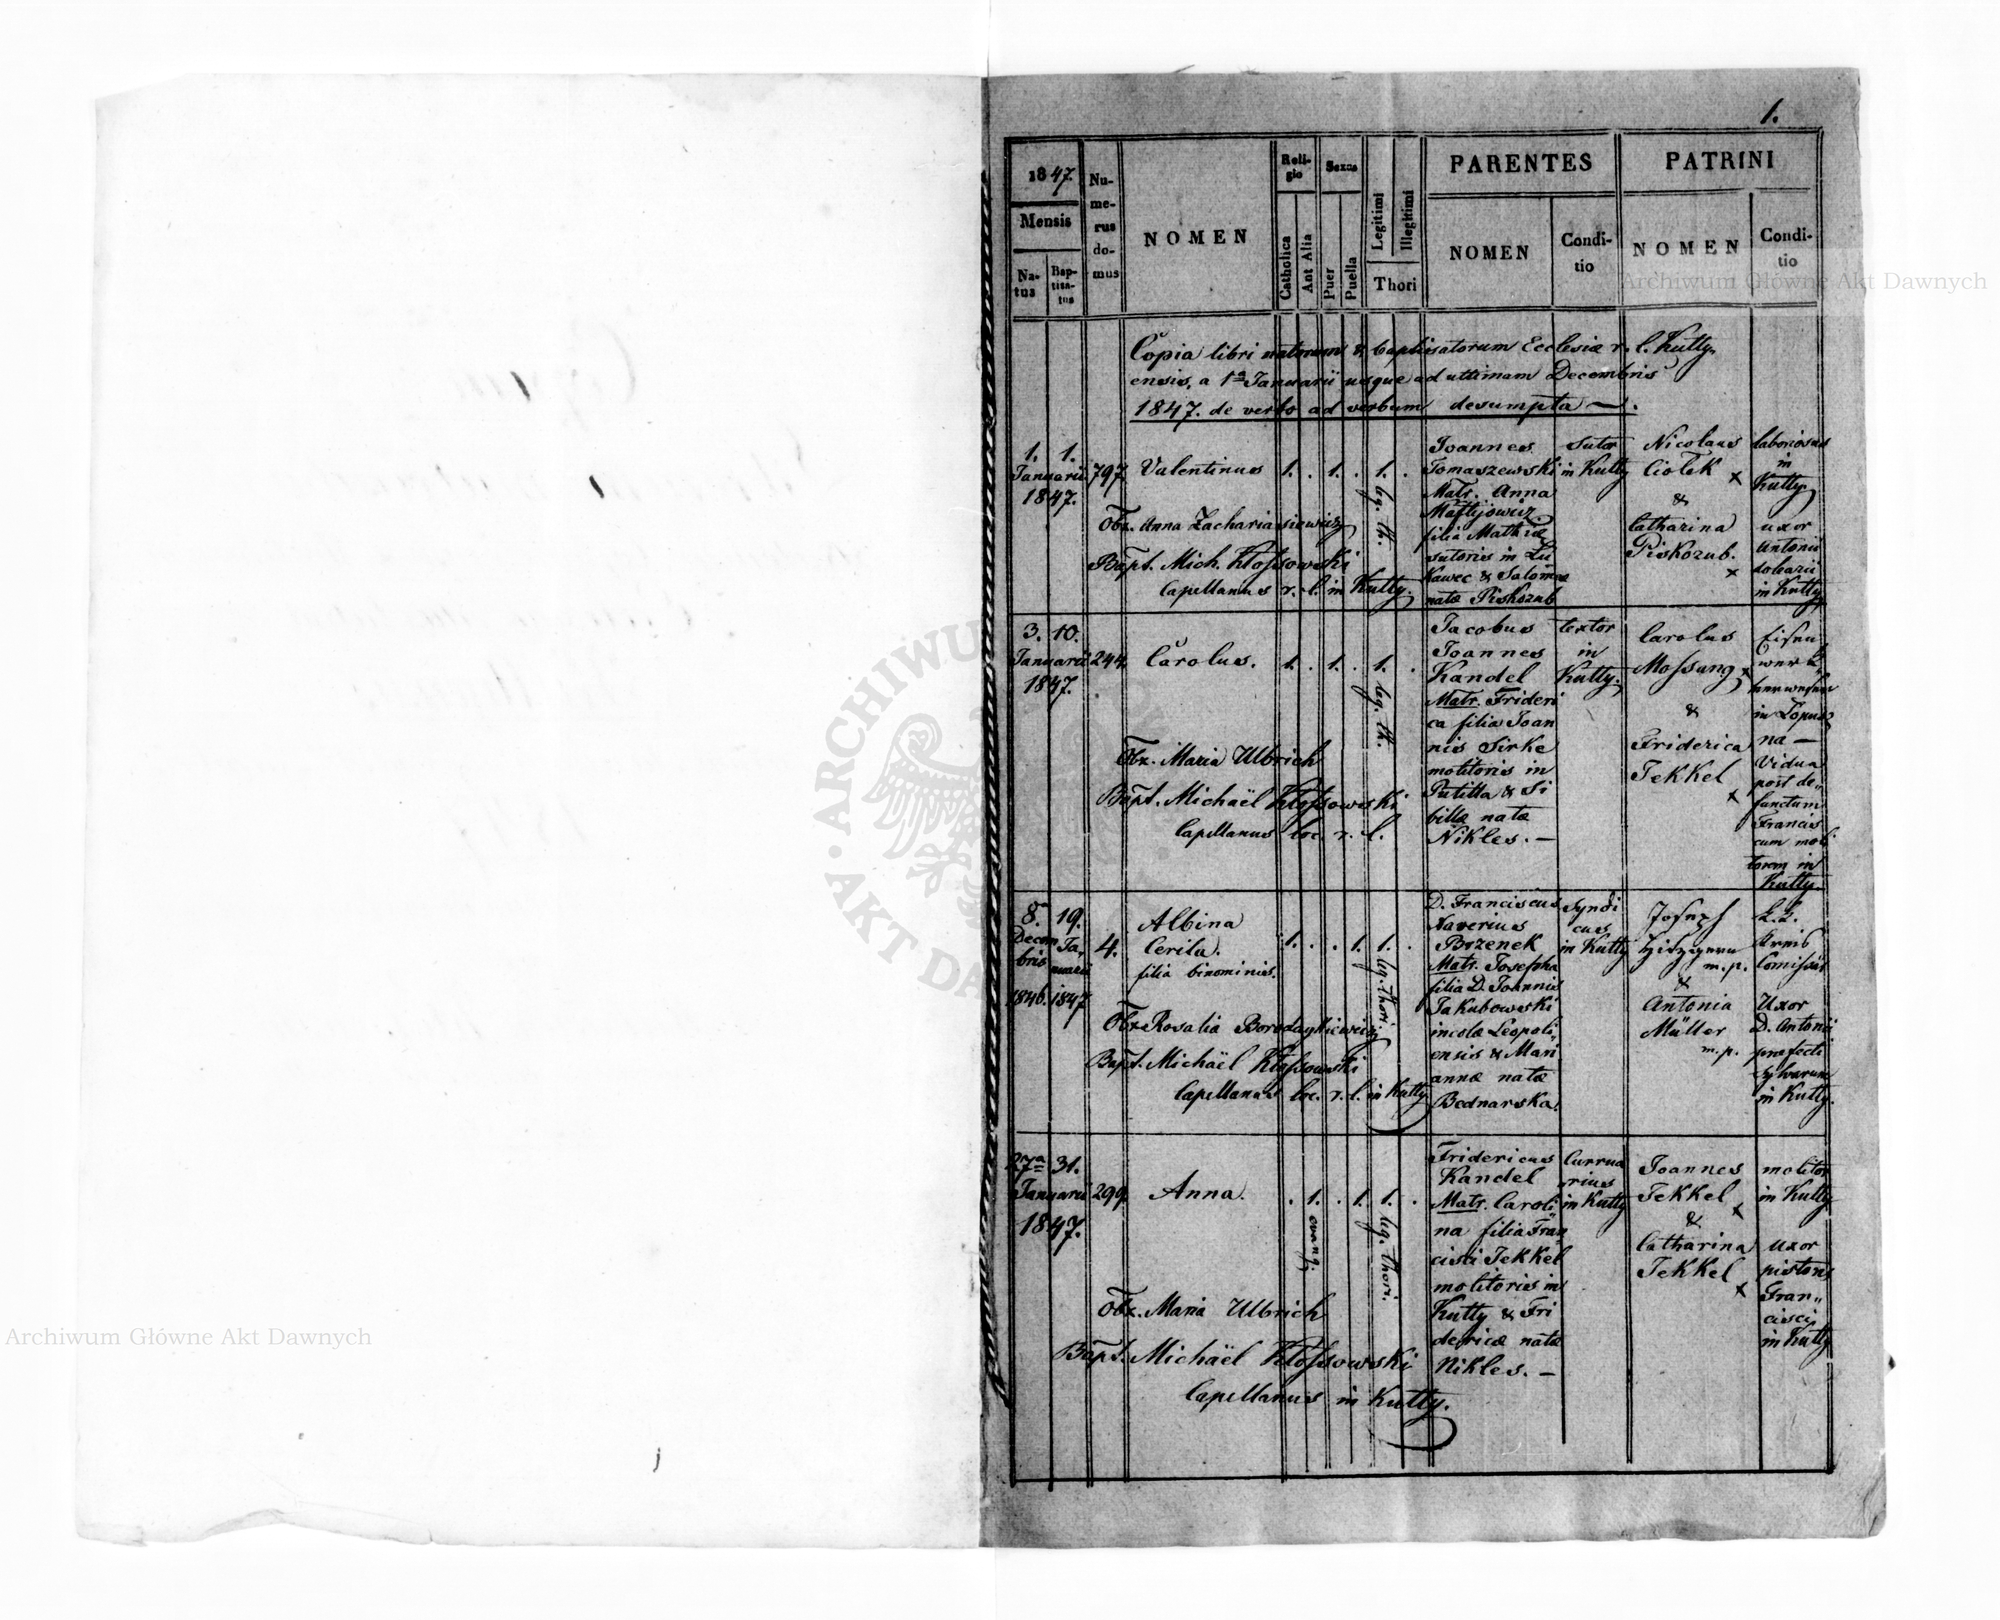 1.
1847.
Mensis
Natus
Baptisatus
Numerus domus
NOMEN
Religio
Catholica
Aut Alia
Sexus
Puer
Puella
Legitimi
Illegitimi
Thori
PARENTES
NOMEN
Conditio
PATRINI
NOMEN
Conditio
Copia libri natorum & baptisatorum Ecclesiæ r. l. Kutty
ensis, a 1a Januarii usque ad ultimam Decembris
1847. de verbo ad verbum desumpta
1. 1.
Januarii
1847.
797.
Valentinus
1. . 1. . 1. .
leg. th.
Obx. Anna Zachariasiewicz
Bapt. Mich. Kłossowski
Capellanus r. l. in Kutty.
Joannes
Tomaszewski
Matr. Anna
filia Mathiæ
sutoris in Łu
kawec & Salomæ
natæ Piskozub
Sutor
in Kutty
Nicolaus
Ciołek x
&
Catharina
Piskozub.
x
laboriosus
in
Kutty
uxor
Antonii
dolearii
in Kutty
3. 10.
Januarii
1847.
244.
Carolus.
1. . 1. . 1. .
leg. th.
Obx. Maria Ulbrich
Bapt. Michaël Kłossowski
Capellanus loc. r. l.
Jacobus
Joannes
Kandel
Matr. Frideri
ca filia Joan
nis Sirke
molitoris in
Putilla & Si
billæ natæ
Nikles. —
textor
in
Kutty.
Carolus
Mossung x
&
Friderica
Jekkel
x
in Lopusz
na —
Vidua
post de„
functum
Francis
cum moli
torem in
Kutty
8. 19.
Decem
bris
Ja„
nuarii
1846. 1847
4.
Albina
Cecila.
filia binominis.
1. . . 1. 1. .
leg. thori.
Obx. Rosalia Borodaykiewicz
Bapt. Michaël Kłossowski
Capellanus loc. r. l. in Kutty
D. Franciscus
Xaverius
Brzenek
Matr. Josepha
filia D. Joannis
Jakubowski
incolæ Leopoli„
ensis & Mari
annæ natæ
Bednarska.
Syndi
cus
in Kutty
Joseph
m. p.
&
Antonia
Müller
m. p.
k. k.
Kreis
Comissär
Uxor
D. Antonii
præfecti
sylvarum
in Kutty.
27a 31.
Januarii
1847.
299.
Anna.
. 1. . 1. 1. .
evang.
leg. thori.
Obx. Maria Ulbrich
Bapt. Michaël Kłossowski
Capellanus in Kutty.
Fridericus
Kandel
Matr. Caroli„
na filia Fran
cisci Jekkel
molitoris in
Kutty & Fri
dericæ natæ
Nikles. —
Currua
rius
in Kutty
Joannes
Jekkel x
&
Catharina
Jekkel
x
molitor
in Kutty
uxor
pistoris
Fran„
cisci
in Kutty
Archiwum Główne Akt Dawnych
Archiwum Główne Akt Dawnych